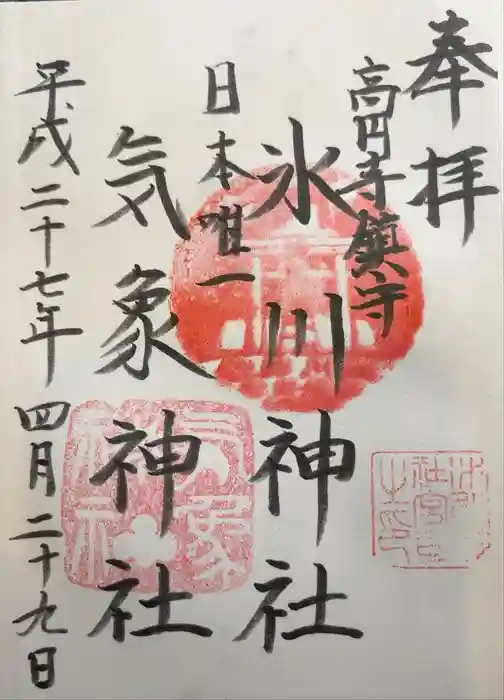 奉拝
高円寺鎮守
氷川神社
日本唯一
気象神社
平成二十七年四月二十九日
気象神社